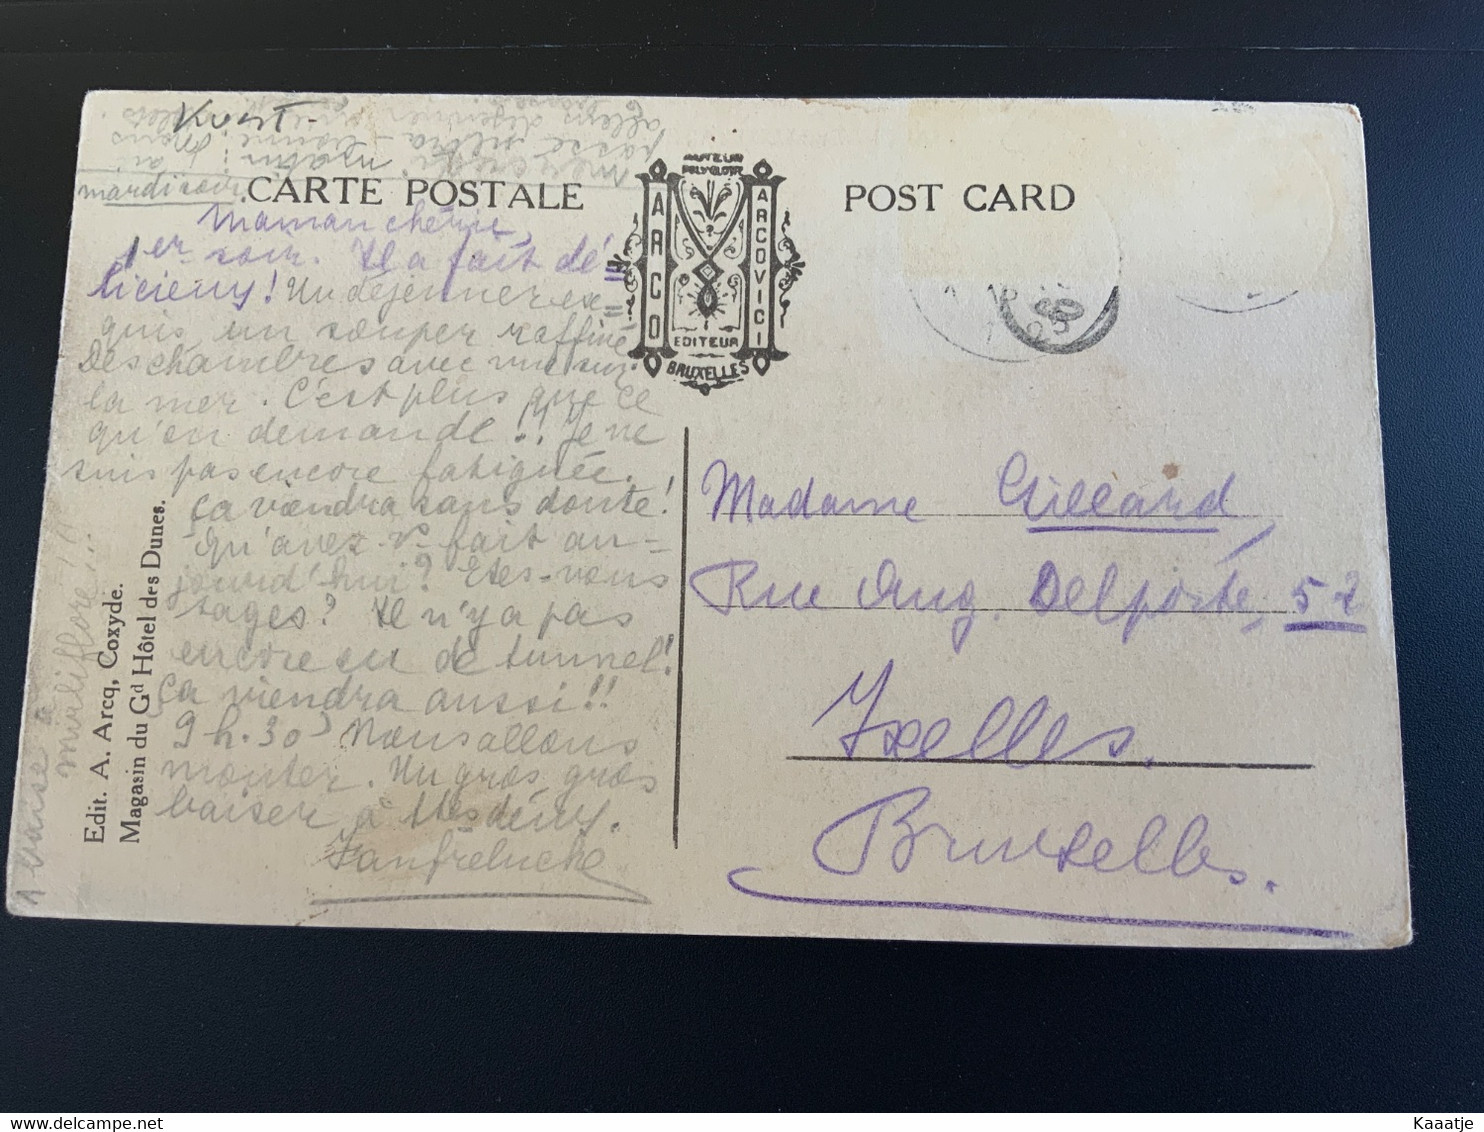 mardi soir.
CARTE POSTALE
POST CARD
AUTEUR
POLYGLOTT
ARCO
ARCOVICI
EDITEUR
BRUXELLES
Maman chérie,
1er soir. Il a fait dé=
licieux! Un déjeuner ex=
quis, un souper raffiné
Des chambres avec vue sur
la mer. C'est plus que ce
qu'on demande!! Je ne
suis pas encore fatiguée.
ça viendra sans doute!
Qu'avez-vs fait au=
jourd'hui? Etes-vous
sages? Il n'y a pas
encore eu de tunnel!
Ça viendra aussi!!
9 h. 30 Nous allons
monter. Un gros gros
baiser à tes deux.
Fanfreluche
1 baise à
Edit. A. Arcq, Coxyde.
Magasin du Gd Hôtel des Dunes.
Madame Gillard
Rue Aug. Delporte, 52
Ixelles.
Bruxelles.
Kaaatje